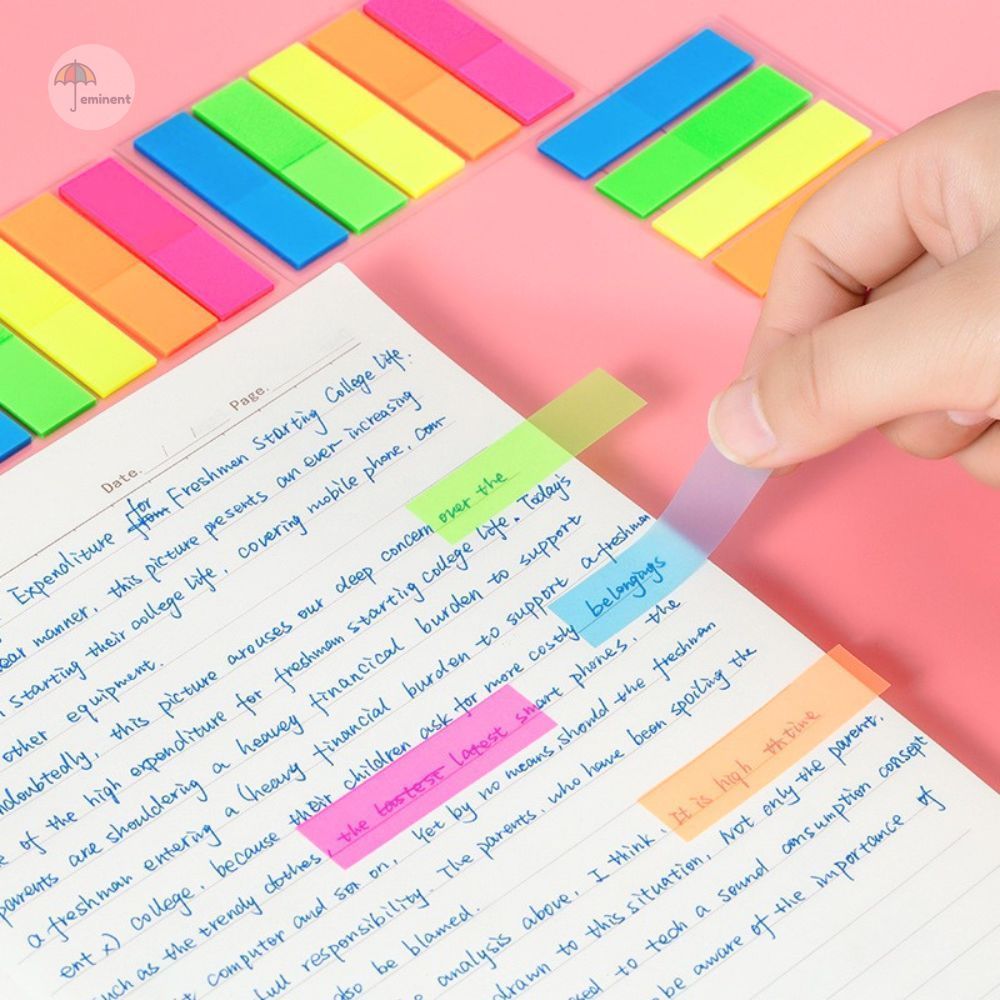 eminent
Date. / / Page.
Expenditure for Freshmen Starting College Life.
ear manner, this picture presents an ever-increasing
starting their college life, covering mobile phone, com-
other equipment.
ndoubtedly, this picture arouses our deep concern over the
e of the high expenditure for freshman starting college life. Today's
parents are shouldering a heavey financical burden to support
a freshman entering a (heavy financial burden to support a freshman
ent x) college, because their children ask for more costly belongings
such as the trendy clothes, the lastest latest smart phones, the
t computer and son on, Yet by no means should the freshman
full responsibility. The parents, who have been spoiling the
also be blamed.
analysis above, I think, It is high thtime
drawn to this situation, Not only the parent,
sed to tech a sound consumption consept
be aware of the importance of